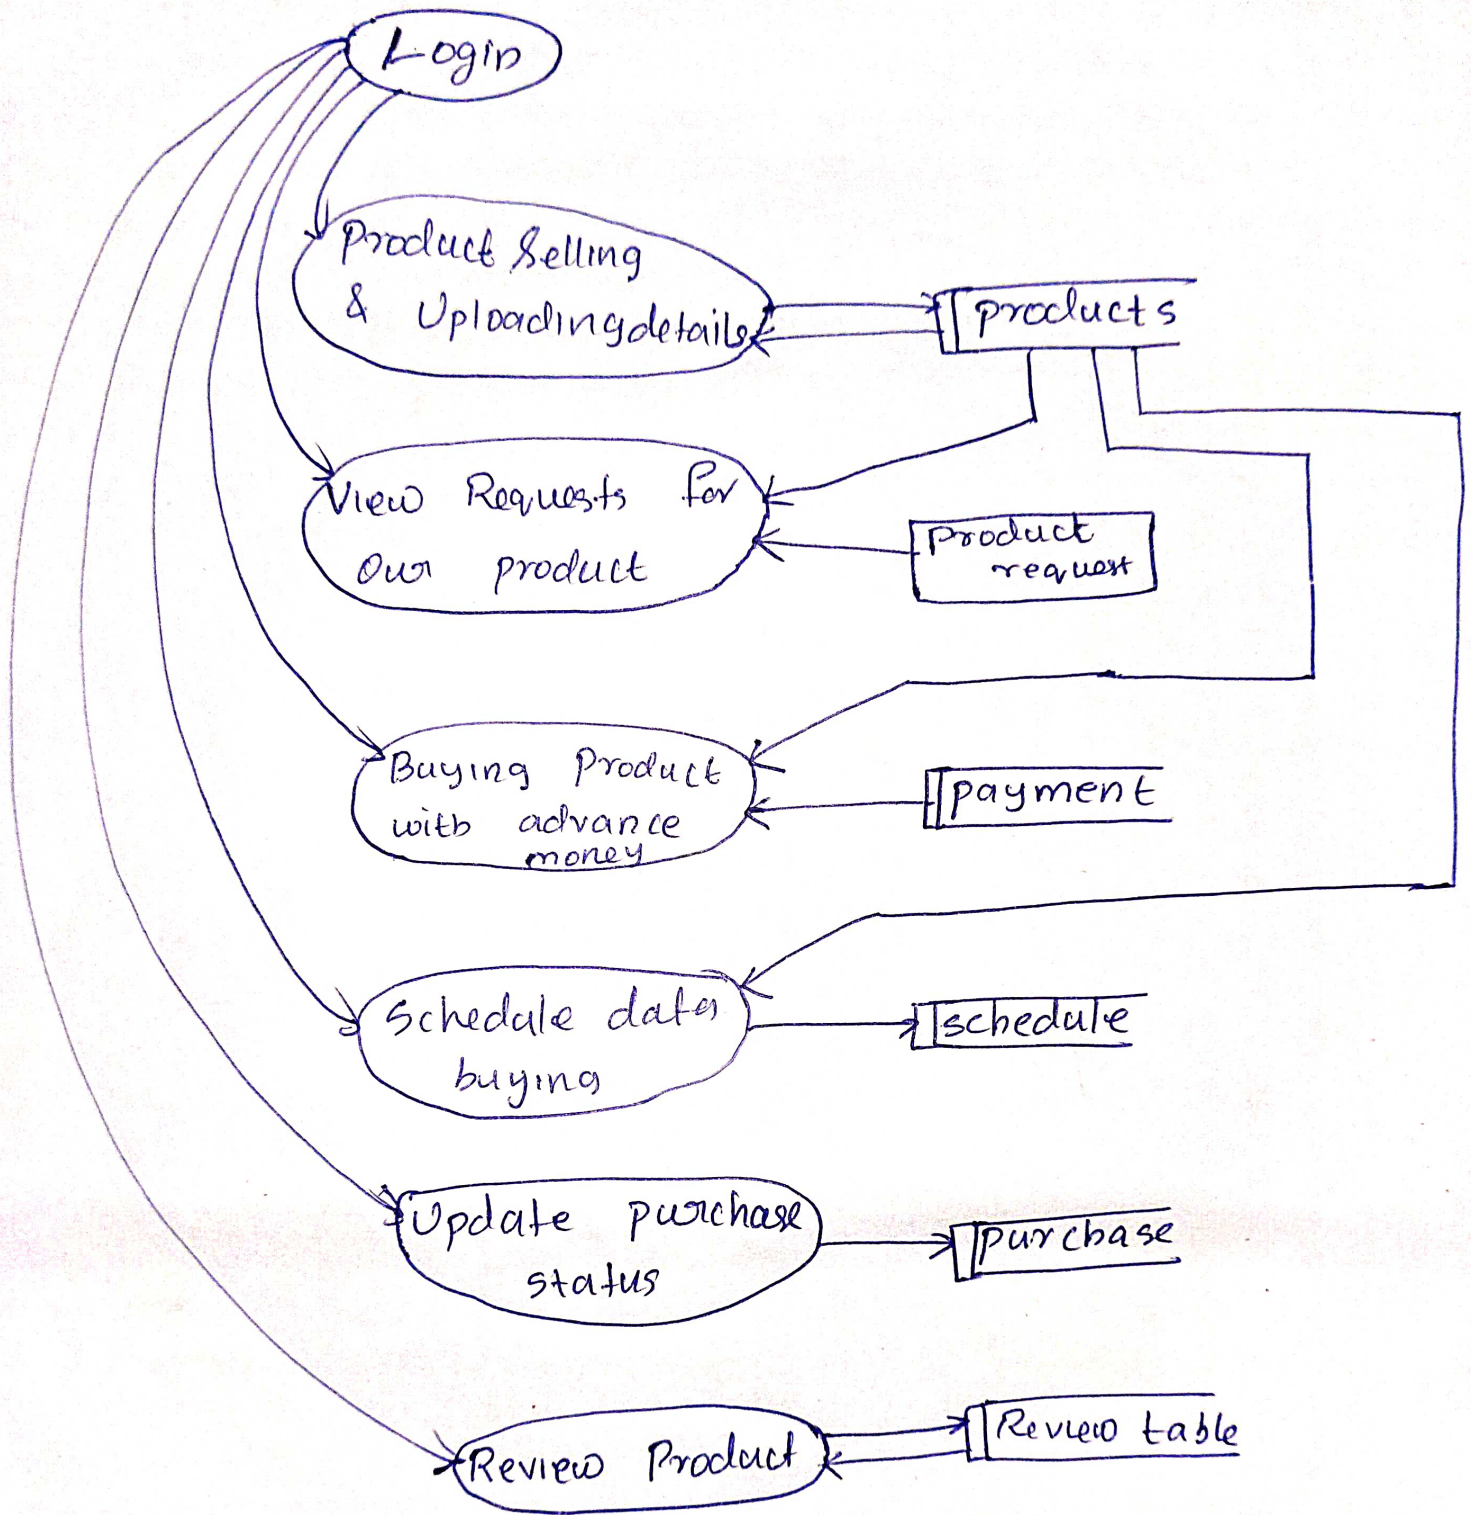 Login
Product Selling
& Uploading details
products
View Requests for
Our product
Product
request
Buying Product
with advance
money
payment
Schedule data
buying
schedule
Update purchase
status
purchase
Review Product
Review table